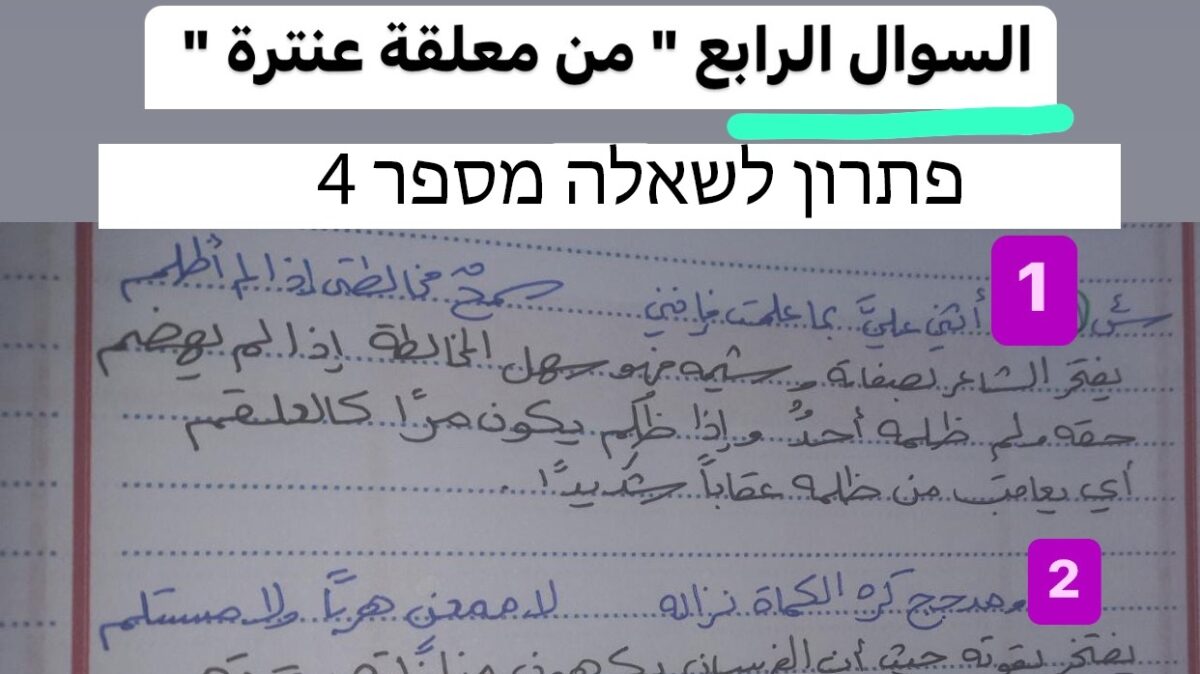 السوال الرابع " من معلقة عنترة "
פתרון לשאלה מספר 4
1
أثني عليَّ بما علمت فإنني سمحٌ مخالطتي إذا لم أُظلم
يفتخر الشاعر بصفاته وشيمه فهو سهل المخالطة إذا لم يهضم
حقه ولم ظلمه أحدٌ وإذا ظُلِم يكون مرًّا كالعلقم
أي يعاقب من ظلمه عقاباً شديدًا.
2
ومدجج كره الكماة نزاله لا ممعنٍ هربًا ولا مستسلم
يفتخر بقوته حيث أن الفرسان يكرهون